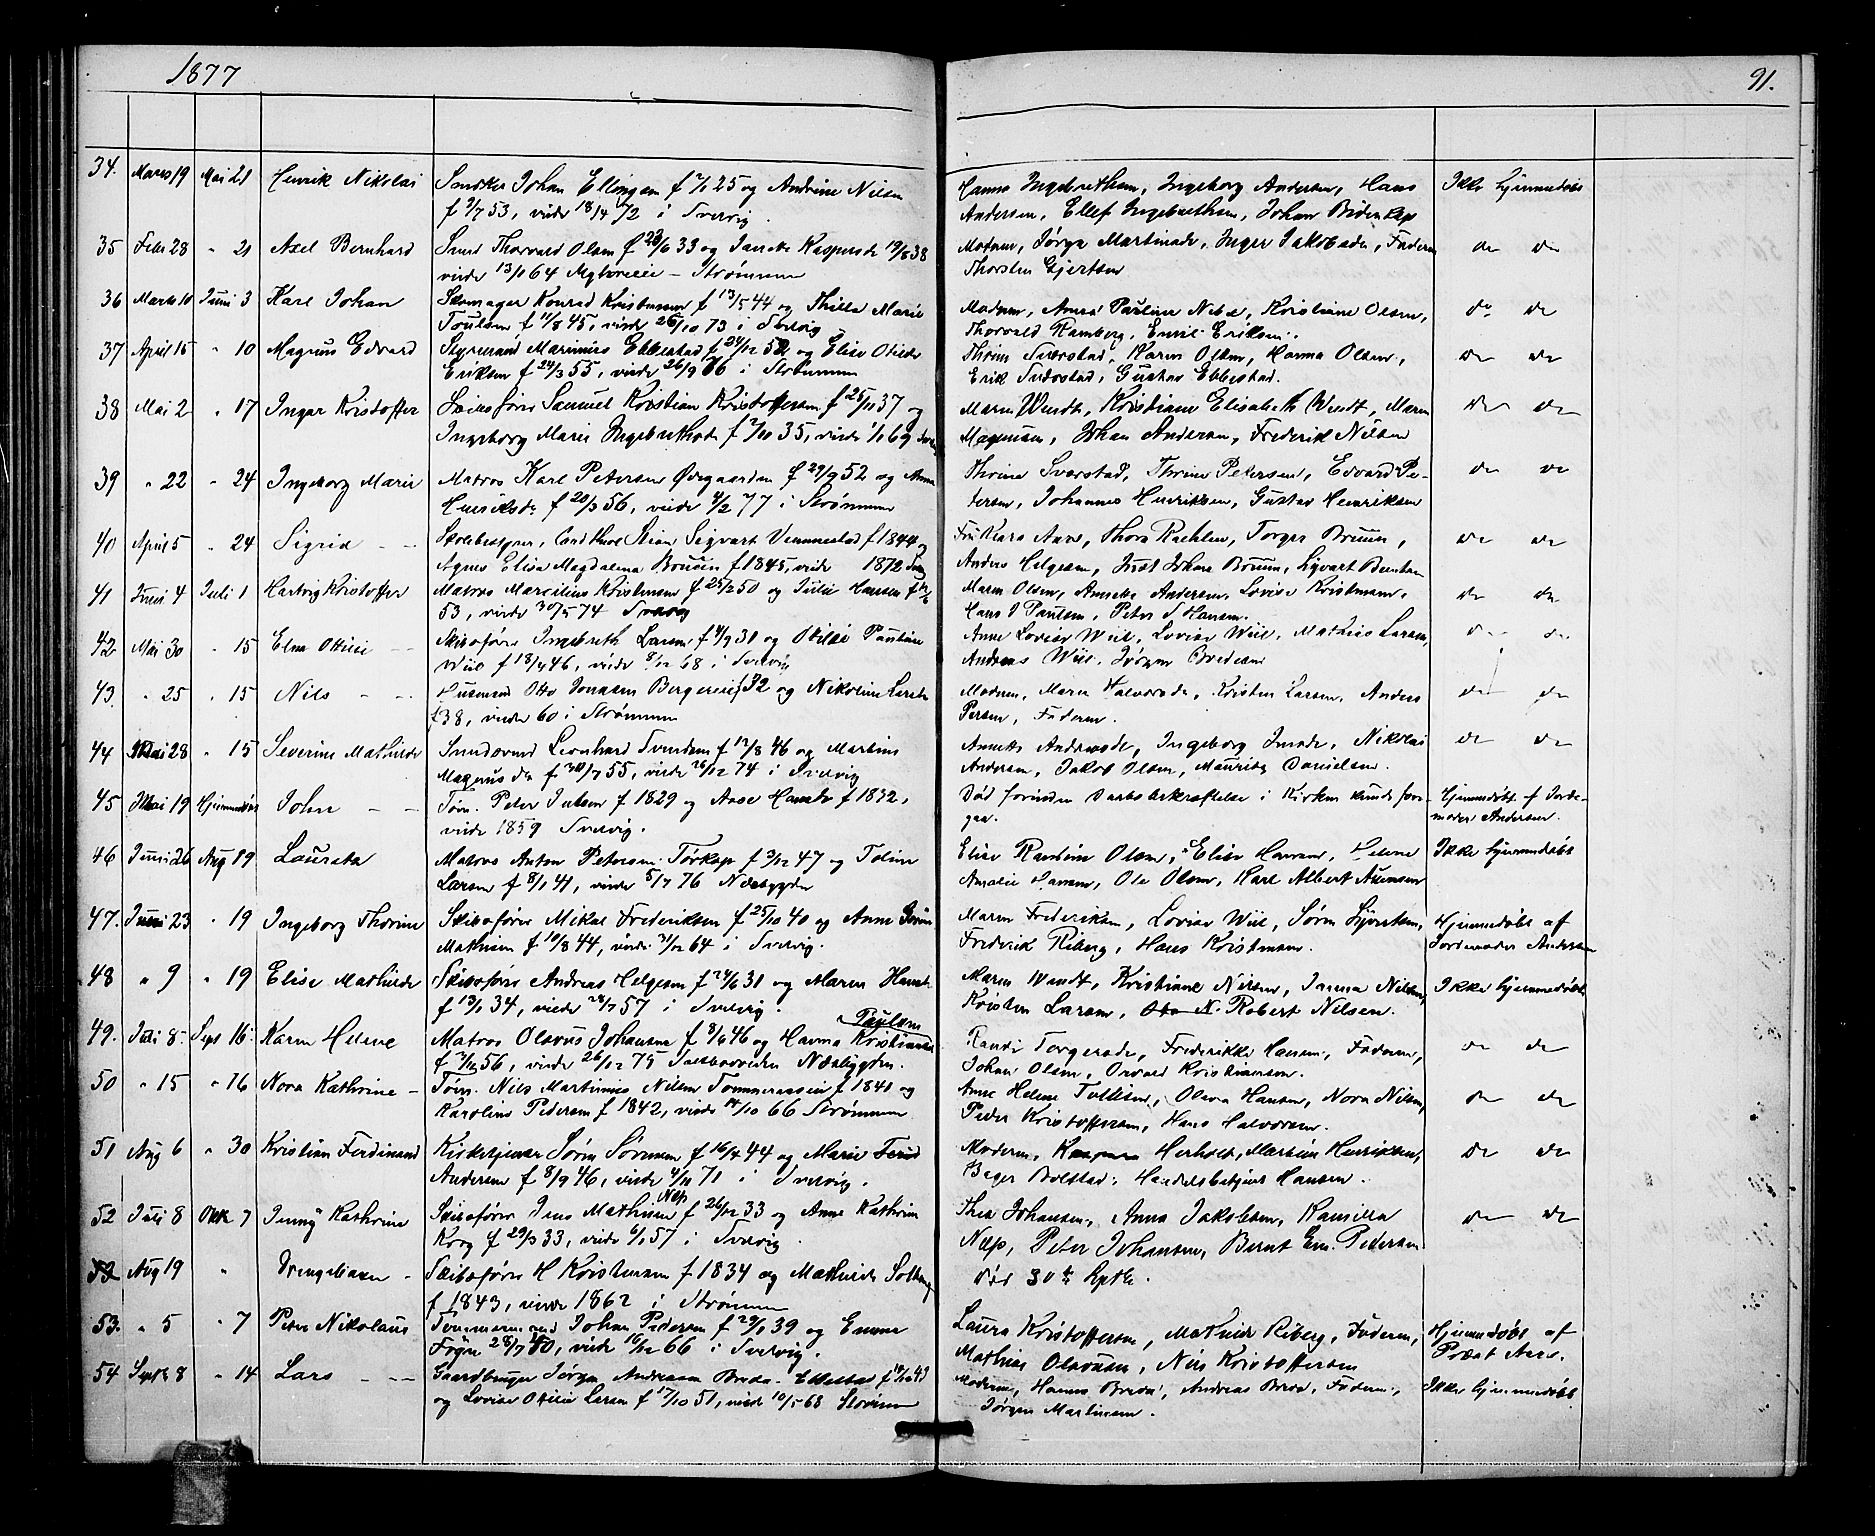 1877
91.
34. Marts 19 Mai 21 Henrik Nikolai Snedker Johan Ellingsen f 25 og Andrine Nilsen
f 2/7 53, viede 18/4 72 i Svelvig.
Hanna Ingebrethsen, Ingeborg Andersen, Hans
Andersen, Ellef Ingebrethsen, Johan
Ikke hjemmedøbt
35 Febr 28 " 21 Axel Bernhard Smed Thorvald Olsen f 33 og Kaspersdr 38
viede 13/10 64 - Strømmen
Moderen, Jørgine Martinsdr, Inger Jakobsdr, Faderen
Thorsten Gjertsen
do do
36 Marts 10 Juni 3 Karl Johan Skomager Konrad Kristensen f 13/5 44 og Thilla Marie
Poulsen f 11/8 45, viede 26/10 73 i Svelvig
Moderen, Anna Pauline Nilsen, Kristine Olsen,
Thorvald Ramberg, Emil Eriksen.
do do
37 April 15 " 10 Magnus Edvard Styrmand Marinius Ebbestad f 24/12 52 og Elise Otilie
Eriksen f 24/3 55, viede 26/9 76 i Strømmen
Thrine Sværstad, Karen Olsen, Hanna Olsen,
Erik Sværstad, Gustav Ebbestad.
do do
38 Mai 2 " 17 Ingar Kristoffer Skibsfører Samuel Kristian Kristoffersen f 25/11 37 og
Ingeborg Marie Ingebrethsdr f 7/10 35, viede 69
Maren Wendt, Kristiane Elisabeth Wendt, Maren
Magnusen, Johan Andersen, Frederik Nilsen
do do
39 " 22 " 24 Ingeborg Marie Matros Karl Petersen Ødegaarden f 29/9 52 og Anna
Henriksdr f 20/3 56, viede 4/2 77 i Strømmen
Thrine Sværstad, Thrine Petersen, Edvard Pe-
dersen, Johannes Henriksen, Gustav Henriksen
do do
40 April 5 " 24 Sigrid Skolebestyrer, Cand theol Stian Sigvart Vemmestad f 1844 og
Agnes Elisa Magdalena Bruun f 1845, viede 1872
Frk Klara Aars, Thora Raehlen, Torger Bruun,
Anders Helgesen, Just Johan Bruun, Sigvart
do do
41 Juni 4 Juli 1 Hartvig Kristoffer Matros Marcilius Kristensen f 25/2 50 og Julie Hansen f
53, viede 30/5 74 Svelvig
Maren Olsen, Annette Andersen, Lovise Kristensen,
Hans J Paulsen, Peter S Hansen.
do do
42 Mai 30 " 15 Elna Otilie Skibsfører Ingebreth Larsen f 4/9 31 og Otilie Pauline
Wiil f 18/4 46, viede 8/12 68 i Svelvig
Anne Lovise Wiil, Lovise Wiil, Mathias Larsen,
Andreas Wiil, Jørgen Bredesen
do do
43. " 25 " 15 Nils Husmand Otto Jonasen Bergereie f 32 og Nikoline Larsdr
f 38, viede 60 i Strømmen
Moderen, Maren Halvorsdr, Kristen Larsen, Anders
Persen, Faderen.
do do
44 Mai 28 " 15 Severine Mathilde Smedsvend Leonhard Svendsen f 12/8 46 og Martine
Magnusdr f 30/7 55, viede 26/12 74 i Svelvig
Annette Andersdr, Ingeborg Jensdr, Nikolai
Andersen, Jakob Olsen, Mauritz Danielsen.
do do
45 Mai 19 Hjemmedøbt John Tøm. Peter Julsen f 1829 og Aase Hansdr f 1832,
viede 1859 Svelvig.
Død forinden Daabsbekræftelse i Kirken kunde fore-
gaa.
Hjemmedøbt af Jorde-
moder Andersen.
46 Juni 26 Aug 19 Laurita Matros Anton Petersen Tørkop f 3/12 47 og Toline
Larsen f 8/1 41, viede 5/7 76 Nesbygden
Elise Randine Olsen, Elise Hansen, Helene
Amalie Hansen, Ole Olsen, Karl Albert
Ikke hjemmedøbt
47. Juni 23 " 19 Ingeborg Thorine Skibsfører Mikal Frederiksen f 25/10 40 og Anne
Mathisen f 10/8 44, viede 31/12 64 i Svelvig.
Maren Frederiksen, Lovise Wiil, Søren
Fredrik Riberg, Hans Kristensen.
Hjemmedøbt af
Jordemoder Andersen
48 " 9 " 19 Elise Mathilde Skibsfører Andreas Helgesen f 24/6 31 og Maren Hansdr
f 13/1 34, viede 28/7 57 i Svelvig.
Maren Wendt, Kristiane Nilsen, Janna Nilsen,
Kristen Larsen, Robert Nilsen.
Ikke hjemmedøbt
49. Juli 8 Sept 16 Karen Helene Matros Olavus Johansen f 8/6 46 og Hanna Kristiansen
Paulsen
f 3/12 56, viede 26/12 75 Nesbygden.
Randi Torgersdr, Frederikke Hansen, Faderen,
Johan Olsen, Kristiansen.
do do
50 " 15 " 16 Nora Kathrine Tøm. Nils Martinius Nilsen Tømmeraaseie f 1841 og
Karoline Pedersen f 1842, viede 14/10 66 Strømmen
Anne Helene Tollefsen, Olava Hansen, Nora Nilsen,
Peder Kristoffersen, Hans Halvorsen.
do do
51 Aug 6 " 30 Kristian Ferdinand Kirketjener Søren Sørensen f 16/4 44 og Marie
Andersen f 8/9 46, viede 4/11 71 i Svelvig.
Moderen, Herholdt, Martine Henriksen,
Bager Bolstad, Handelsbetjent Hansen.
do do
52 Juli 8 Oktr 7 Jenny Kathrine Skibsfører Jens Mathisen Næp f 26/12 33 og Anne Kathrine
Korg f 29/3 33, viede 6/1 57 i Svelvig.
Thea Johansen, Anna Jakobsen, Kamilla
Næp, Peter Johansen, Bernt Em. Pedersen
do do
53 Aug 19 " Drengebarn Skibsfører H Kristensen f 1834 og Mathilde Solberg
f 1843, viede 1862 i Strømmen
død 30te Septb.
53. " 5 " 7 Peter Nikolaus Tømmermand Johan Pedersen f 29/1 39 og Emma
f 28/7 40, viede 16/12 66 i Svelvig.
Laura Kristoffersen, Mathilde Riberg, Faderen,
Mathias Olavesen, Nils Kristoffersen
Hjemmedøbt af
Præst Aars.
54 Septb 8 " 14 Lars Gaardbruger Jørgen Andreasen Brede Ebbestad f 43
og Lovise Otilie Larsen f 17/10 51, viede 10/5 68 Strømm
Moderen, Hanna Brede, Andreas Brede, Faderen,
Jørgen Martinsen.
Ikke hjemmedøbt